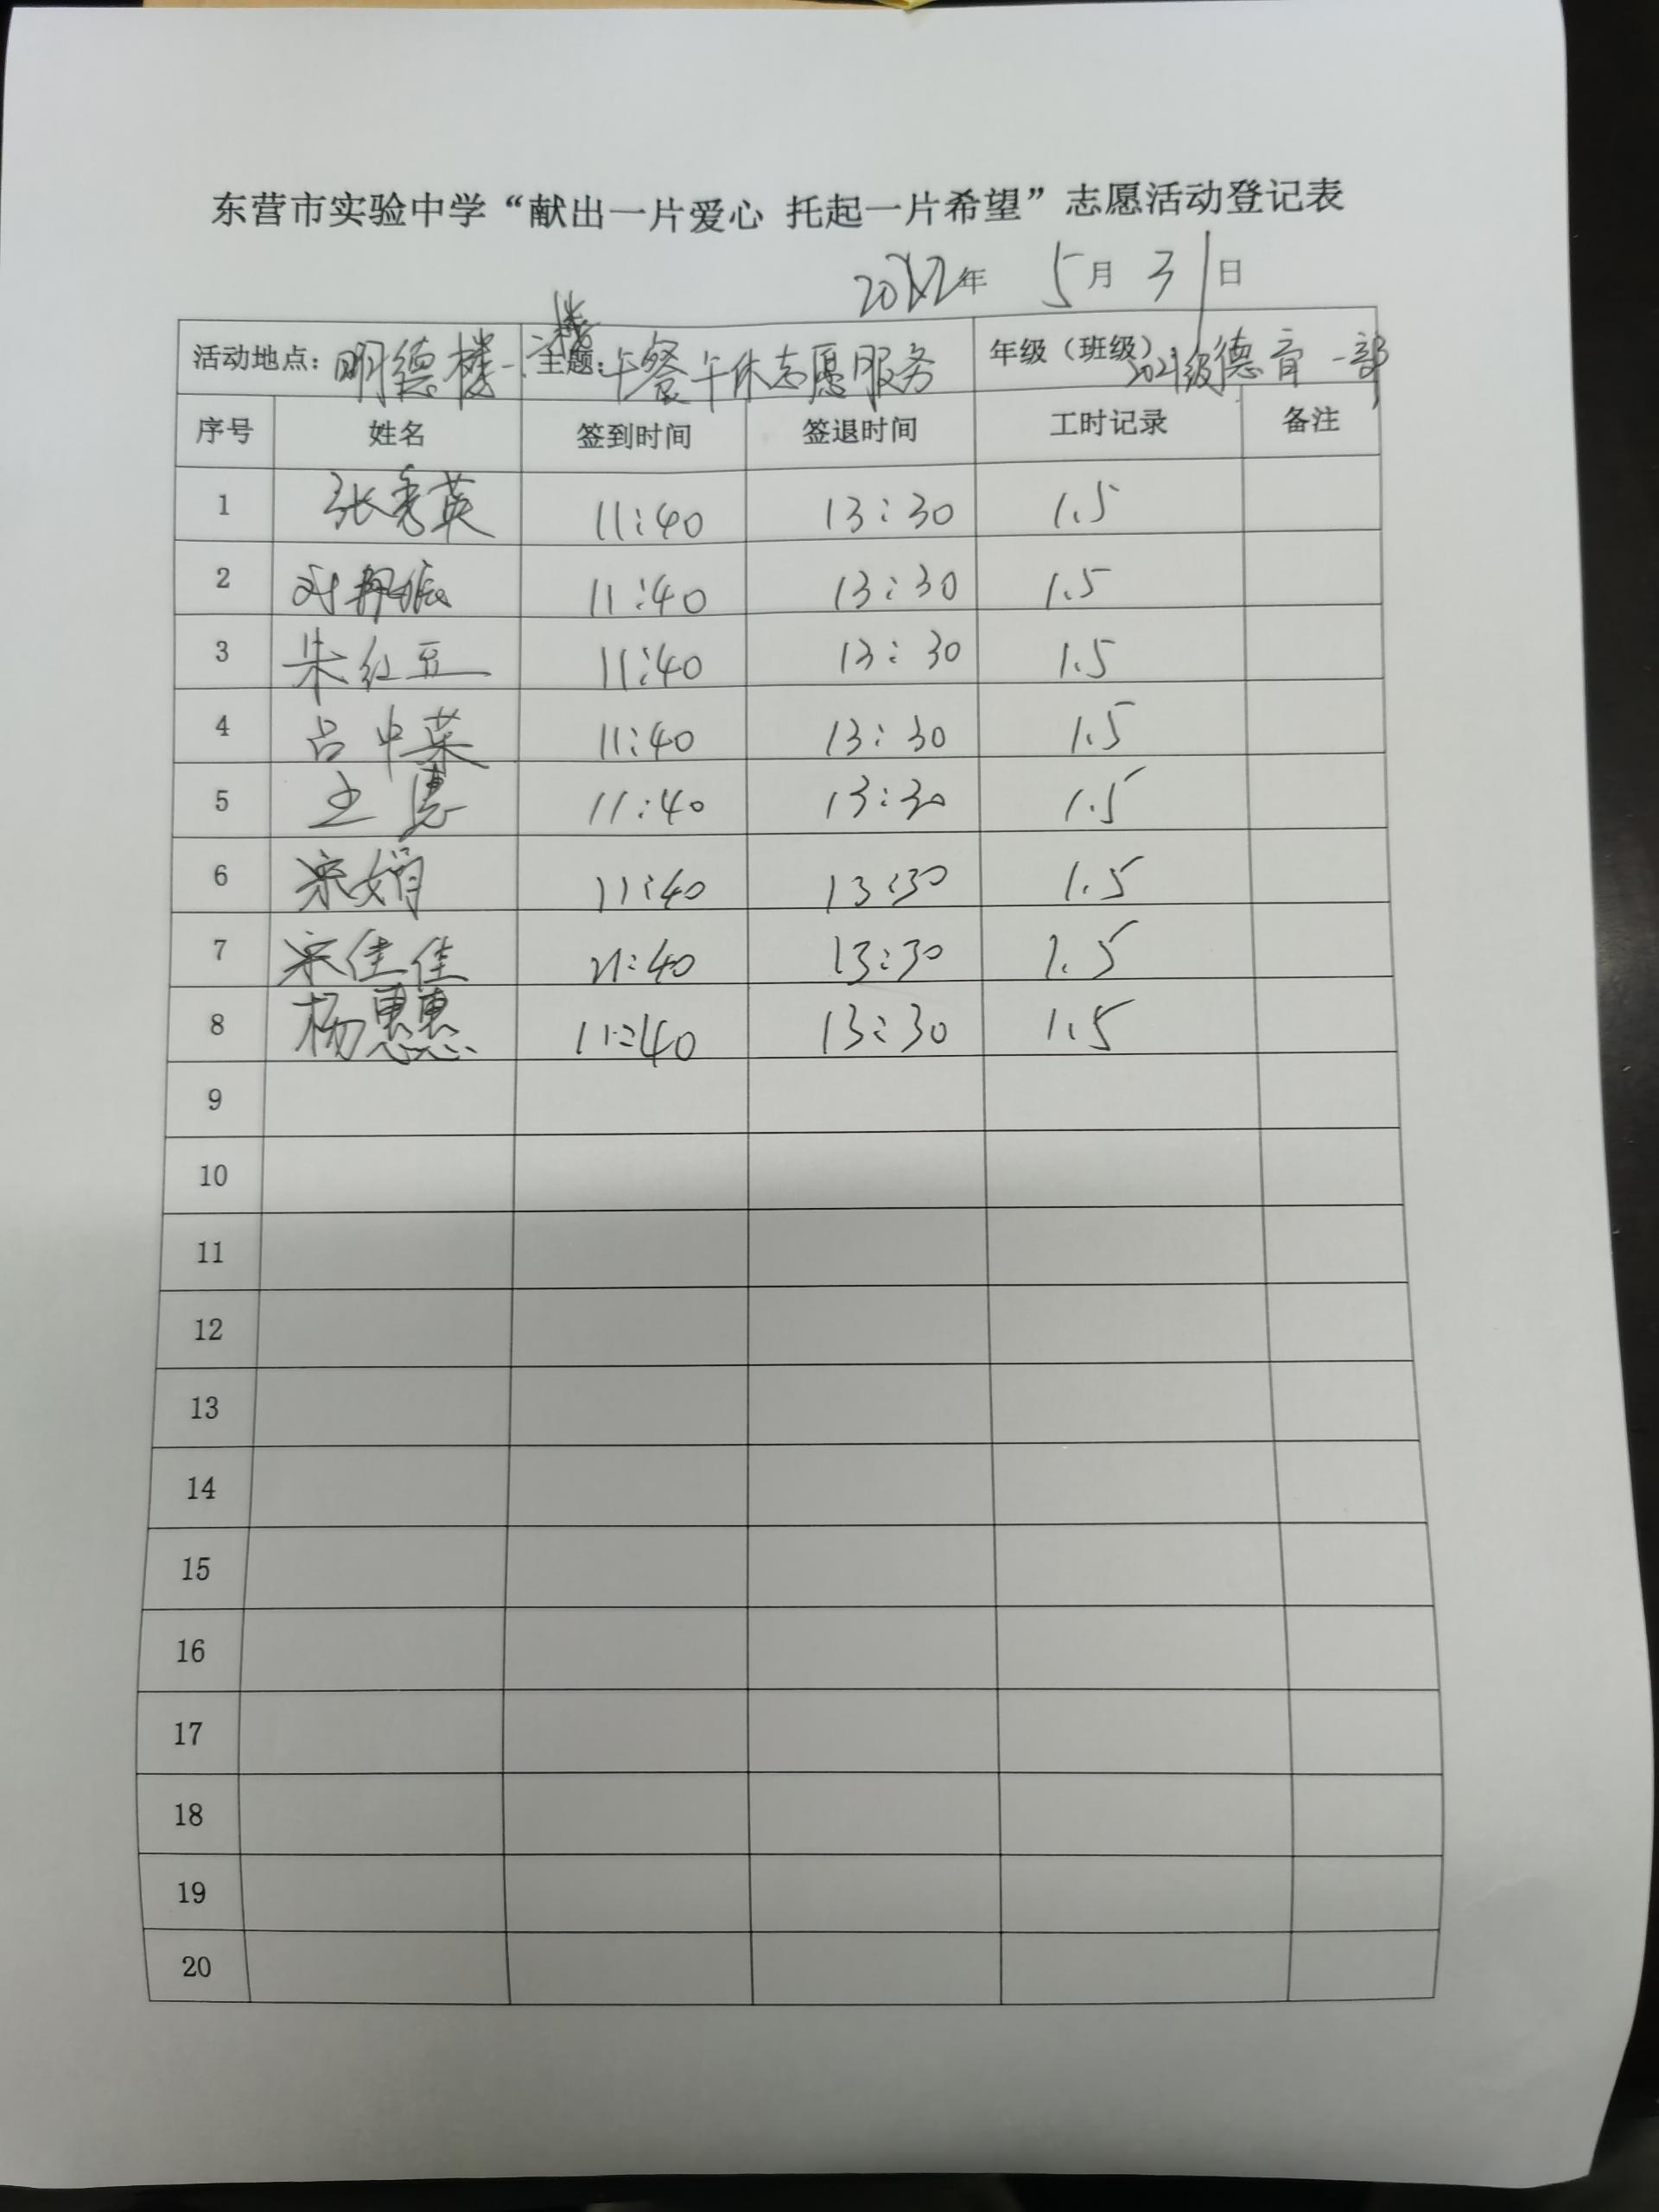 东营市实验中学“献出一片爱心 托起一片希望”志愿活动登记表
2022年 5月31日
活动地点：明德楼一楼 主题：午餐午休志愿服务 年级（班级）2021级德育一部
序号 姓名 签到时间 签退时间 工时记录 备注
1 张秀英 11:40 13:30 1.5
2 11:40 13:30 1.5
3 朱红豆 11:40 13:30 1.5
4 吕中菜 11:40 13:30 1.5
5 王慧 11:40 13:30 1.5
6 宋娟 11:40 13:30 1.5
7 宋佳佳 11:40 13:30 1.5
8 杨惠惠 11:40 13:30 1.5
9
10
11
12
13
14
15
16
17
18
19
20